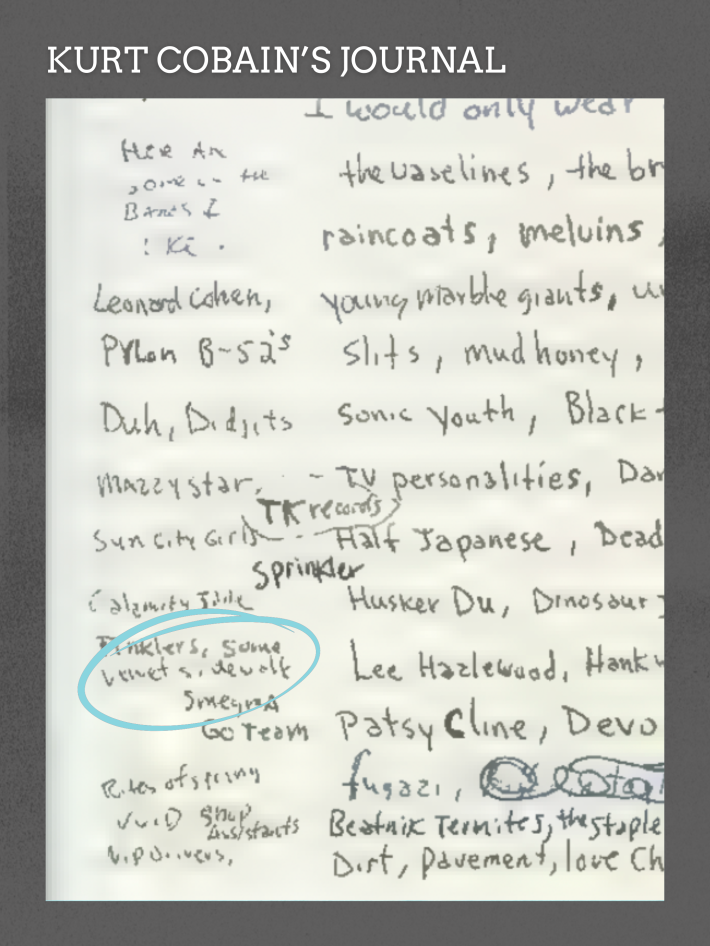 KURT COBAIN'S JOURNAL
I would only wear
Here Are
some the
Bands I
the vaselines, the br
raincoats, melvins,
Leonard Cohen,
young marble giants,
Pylon B-52's
Slits, mudhoney,
Duh, Didjits
Sonic Youth, Black
mazzystar,
TV personalities, Dan
TK records
Sun City Girls
Half Japanese, Dead
Sprinkler
Calamity Jane
Husker Du, Dinosaur
some
velvet sidewalk
Lee Hazlewood, Hank
SmegmA
Go Team
Patsy Cline, Devo
Rites of spring
fugazi,
Shop
Assistants
Beatnix Termites, the staple
Dirt, pavement, love Ch